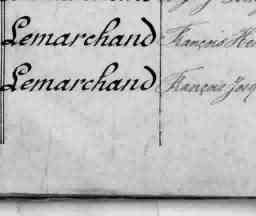 Lemarchand François He
Lemarchand François Jacq